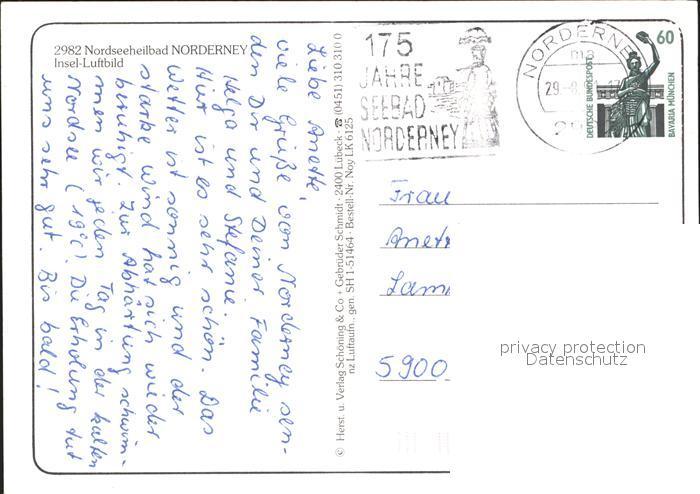 2982 Nordseeheilbad NORDERNEY
Insel-Luftbild
Liebe Anette,
viele Grüße von Norderney sen-
den Dir und Deiner Familie
Helga und Stefanie.
Hier ist es sehr schön. Das
Wetter ist sonnig und der
starke Wind hat sich wieder
beruhigt. Zur Abhärtung schwim-
men wir jeden Tag in der kalten
Nordsee (19°C). Die Erholung tut
uns sehr gut. Bis bald!
© Herst. u. Verlag Schöning & Co + Gebrüder Schmidt · 2400 Lübeck · ☎ (0451) 310 310 0
nz Luftaufn.. gen. SH 1-51464 · Bestell-Nr. Noy LK 6125
175
JAHRE
SEEBAD
NORDERNEY
NORDERNEY
29.-8.
60
DEUTSCHE BUNDESPOST
BAVARIA MÜNCHEN
Frau
Anett
Lam
5900
privacy protection
Datenschutz